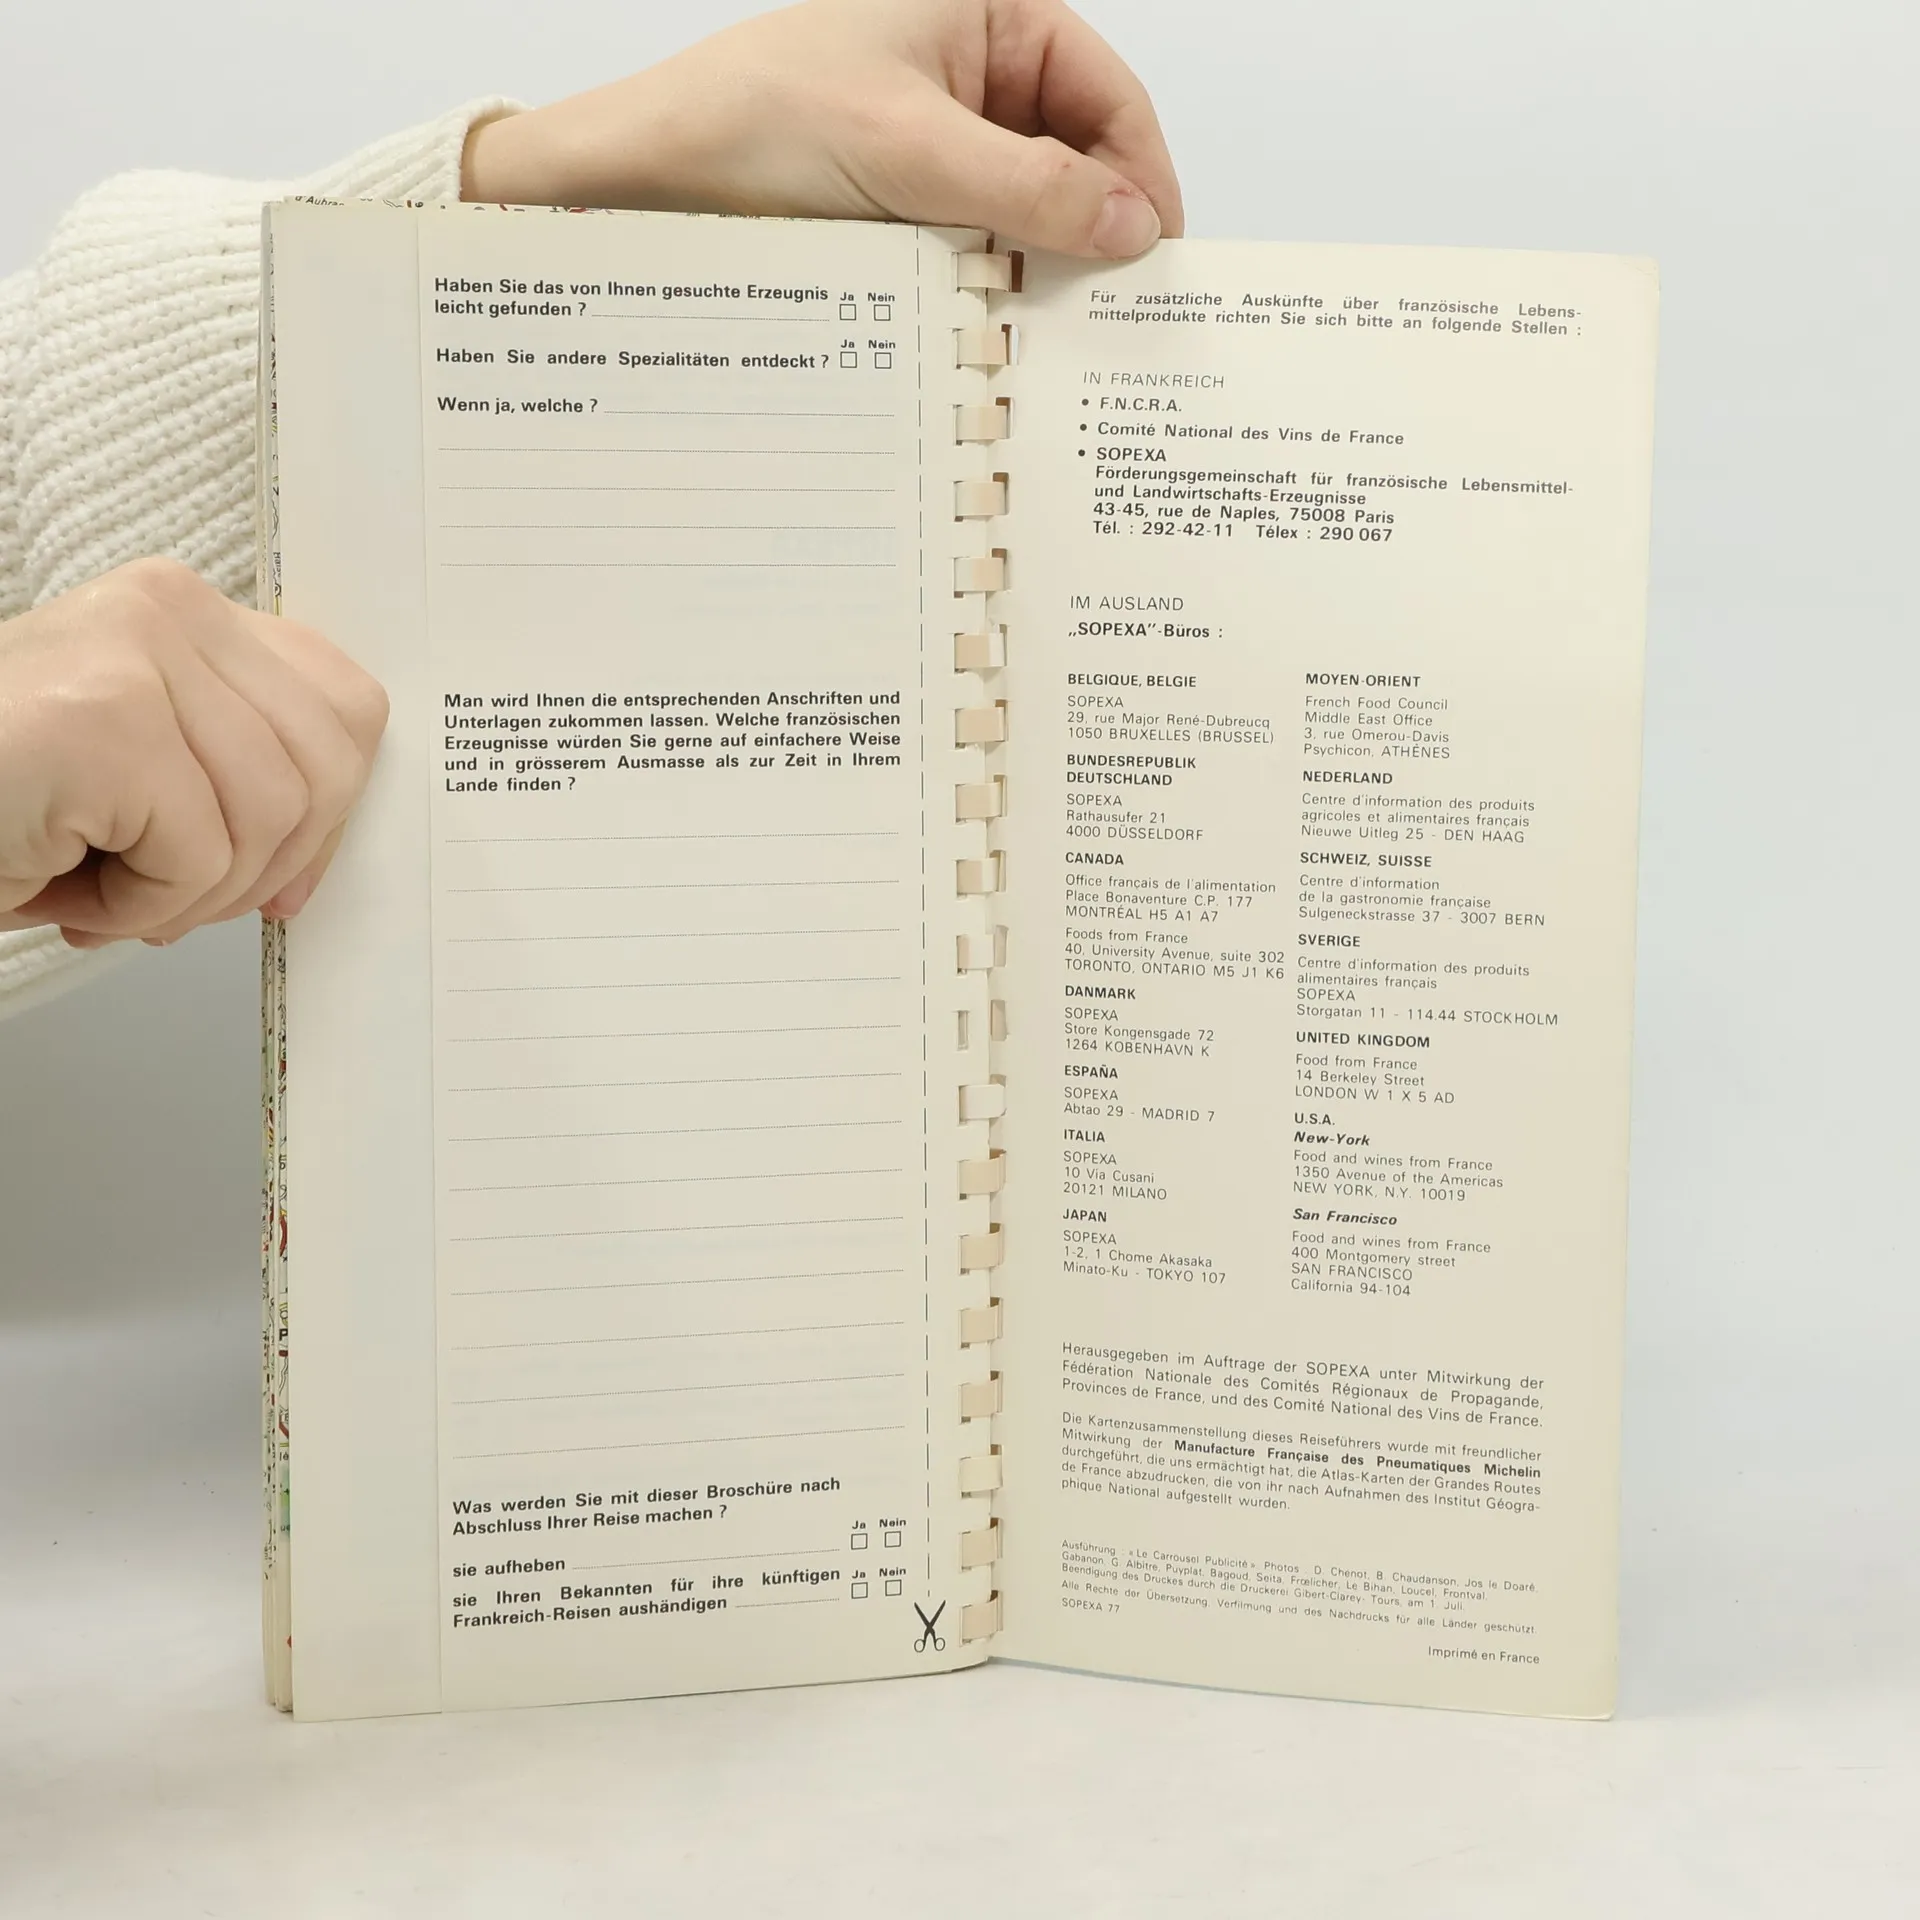 d'Aubrac
Haben Sie das von Ihnen gesuchte Erzeugnis
leicht gefunden ?
Ja Nein
Haben Sie andere Spezialitäten entdeckt ?
Ja Nein
Wenn ja, welche ?
Man wird Ihnen die entsprechenden Anschriften und
Unterlagen zukommen lassen. Welche französischen
Erzeugnisse würden Sie gerne auf einfachere Weise
und in grösserem Ausmasse als zur Zeit in Ihrem
Lande finden ?
Was werden Sie mit dieser Broschüre nach
Abschluss Ihrer Reise machen ?
Ja Nein
sie aufheben
sie Ihren Bekannten für ihre künftigen
Frankreich-Reisen aushändigen
Ja Nein
Für zusätzliche Auskünfte über französische Lebens-
mittelprodukte richten Sie sich bitte an folgende Stellen :
IN FRANKREICH
• F.N.C.R.A.
• Comité National des Vins de France
• SOPEXA
Förderungsgemeinschaft für französische Lebensmittel-
und Landwirtschafts-Erzeugnisse
43-45, rue de Naples, 75008 Paris
Tél. : 292-42-11 Télex : 290 067
IM AUSLAND
„SOPEXA"-Büros :
BELGIQUE, BELGIE
SOPEXA
29, rue Major René-Dubreucq
1050 BRUXELLES (BRUSSEL)
BUNDESREPUBLIK
DEUTSCHLAND
SOPEXA
Rathausufer 21
4000 DÜSSELDORF
CANADA
Office français de l'alimentation
Place Bonaventure C.P. 177
MONTRÉAL H5 A1 A7
Foods from France
40, University Avenue, suite 302
TORONTO, ONTARIO M5 J1 K6
DANMARK
SOPEXA
Store Kongensgade 72
1264 KOBENHAVN K
ESPAÑA
SOPEXA
Abtao 29 - MADRID 7
ITALIA
SOPEXA
10 Via Cusani
20121 MILANO
JAPAN
SOPEXA
1-2, 1 Chome Akasaka
Minato-Ku - TOKYO 107
MOYEN-ORIENT
French Food Council
Middle East Office
3, rue Omerou-Davis
Psychicon, ATHÈNES
NEDERLAND
Centre d'information des produits
agricoles et alimentaires français
Nieuwe Uitleg 25 - DEN HAAG
SCHWEIZ, SUISSE
Centre d'information
de la gastronomie française
Sulgeneckstrasse 37 - 3007 BERN
SVERIGE
Centre d'information des produits
alimentaires français
SOPEXA
Storgatan 11 - 114.44 STOCKHOLM
UNITED KINGDOM
Food from France
14 Berkeley Street
LONDON W 1 X 5 AD
U.S.A.
New-York
Food and wines from France
1350 Avenue of the Americas
NEW YORK, N.Y. 10019
San Francisco
Food and wines from France
400 Montgomery street
SAN FRANCISCO
California 94-104
Herausgegeben im Auftrage der SOPEXA unter Mitwirkung der
Fédération Nationale des Comités Régionaux de Propagande,
Provinces de France, und des Comité National des Vins de France.
Die Kartenzusammenstellung dieses Reiseführers wurde mit freundlicher
Mitwirkung der Manufacture Française des Pneumatiques Michelin
durchgeführt, die uns ermächtigt hat, die Atlas-Karten der Grandes Routes
de France abzudrucken, die von ihr nach Aufnahmen des Institut Géogra-
phique National aufgestellt wurden.
Ausführung : « Le Carrousel Publicité ». Photos : D. Chenot, B. Chaudanson, Jos le Doaré,
Gabanon, G. Albitre, Puyplat, Bagoud, Seita, Frœlicher, Le Bihan, Loucel, Frontval.
Beendigung des Druckes durch die Druckerei Gibert-Clarey- Tours, am 1. Juli.
Alle Rechte der Übersetzung, Verfilmung und des Nachdrucks für alle Länder geschützt.
SOPEXA 77
Imprimé en France